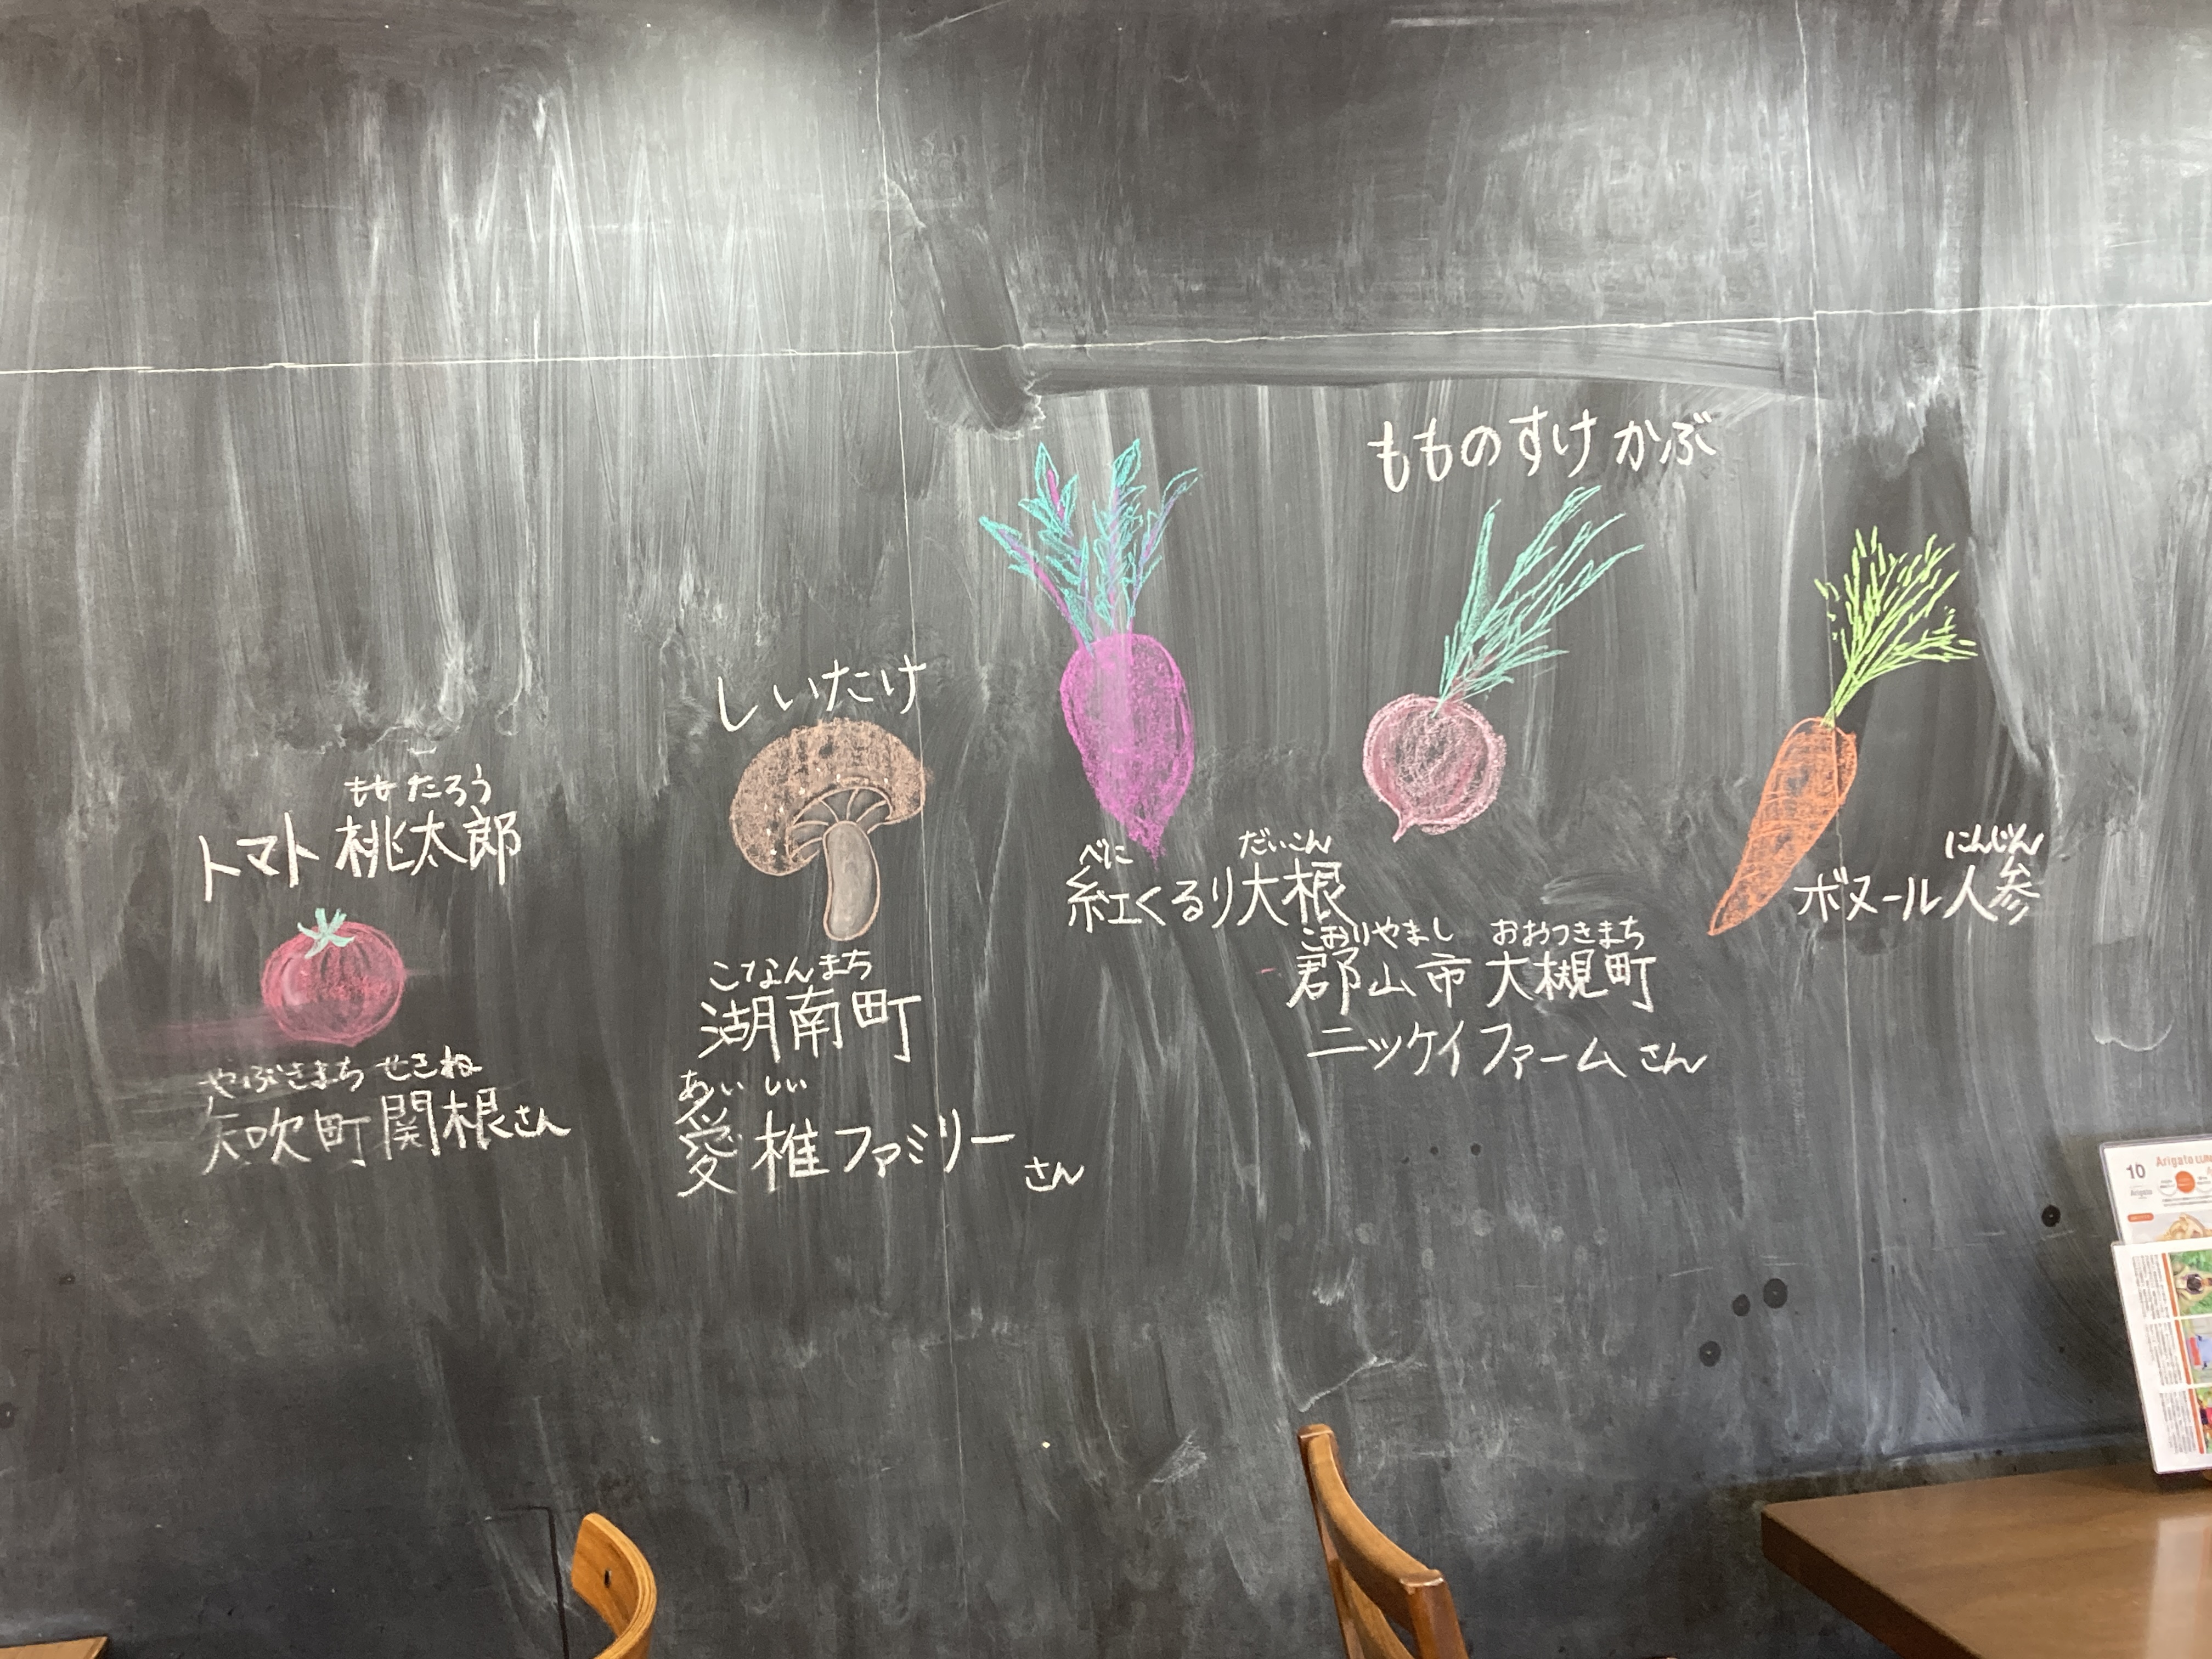 ももたろう
トマト 桃太郎
やぶきまち せきね
矢吹町 関根さん
しいたけ
こなんまち
湖南町
あい しい
愛椎ファミリー
さん
べに だいこん
紅くるり大根
もものすけ かぶ
にんじん
ボヌール人参
こおりやまし おおつきまち
郡山市 大槻町
ニッケイファーム さん
10 Arigato LUN